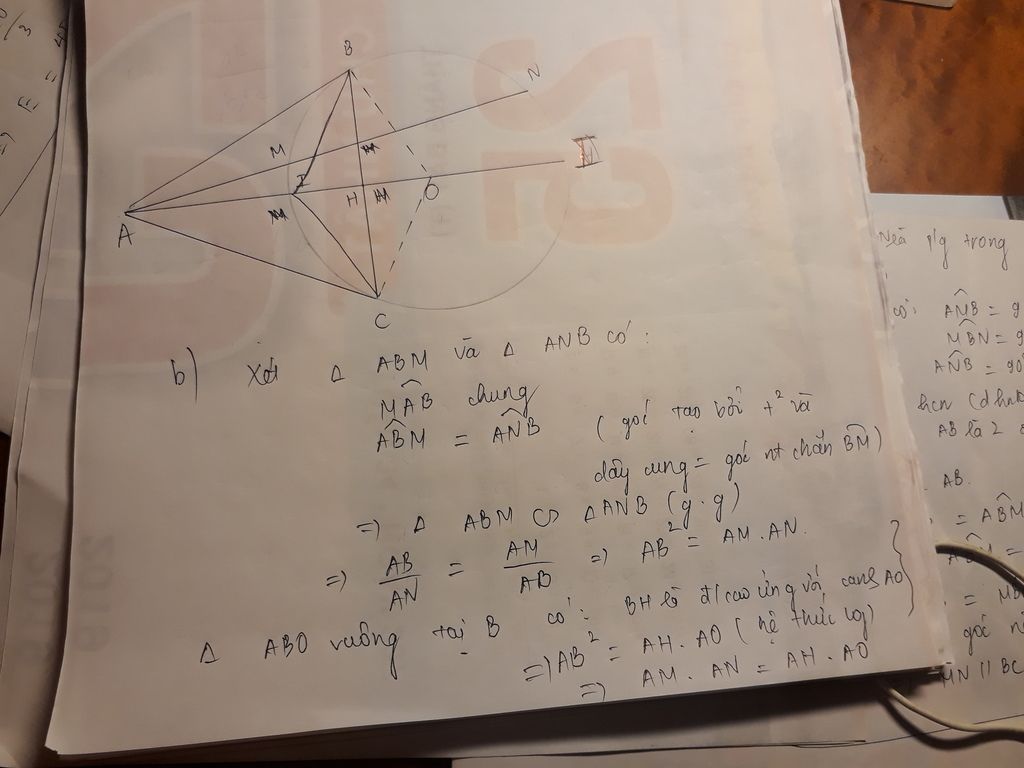 B
N
M
I
H
O
A
C
b) Xét Δ ABM và Δ ANB có:
M̂AB chung
AB̂M = AN̂B (góc tạo bởi t² và
dây cung = góc nt chắn BM)
=> Δ ABM ∽ Δ ANB (g.g)
=> AB/AN = AM/AB => AB² = AM.AN.
Δ ABO vuông tại B có: BH là đ/cao ứng với cạnh AO
=> AB² = AH.AO (hệ thức lg)
=> AM.AN = AH.AO
trong
có: AM̂B = 9
MB̂N = 9
AN̂B = 90
hcn (dhnb
AB là 2
AB.
= AB̂M
góc
MN // BC